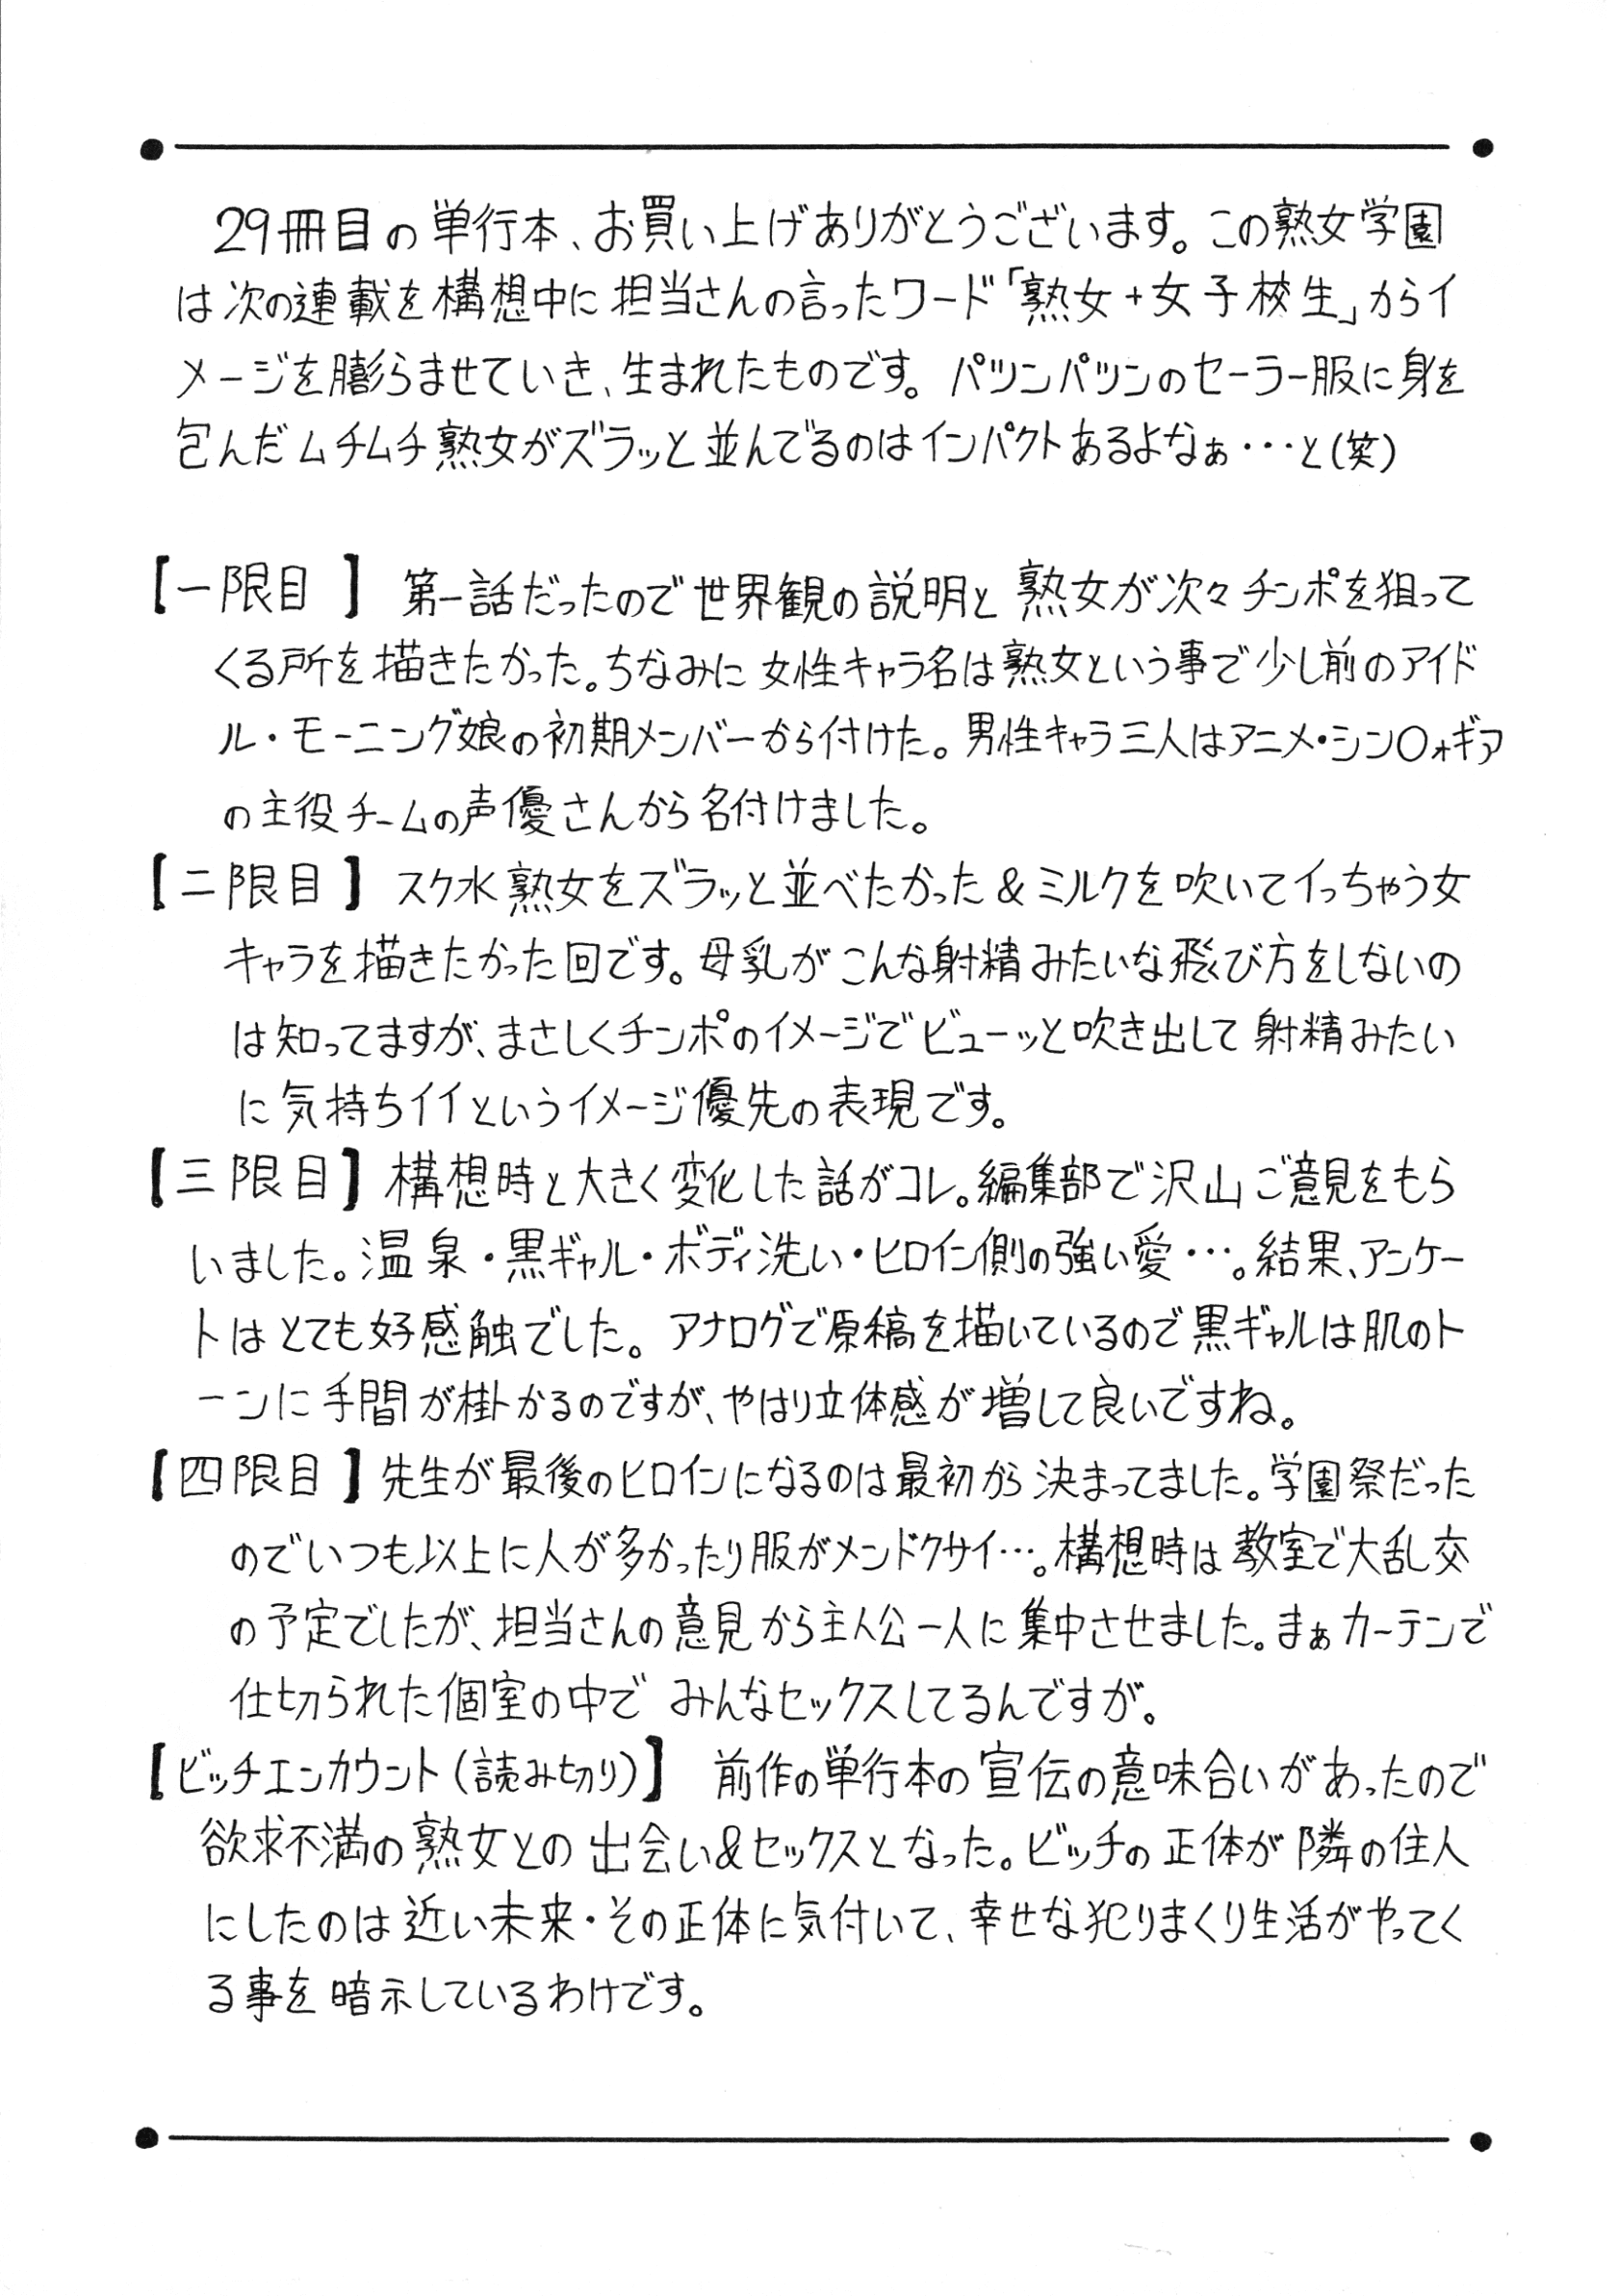 29冊目の単行本、お買い上げありがとうございます。この熟女学園
は次の連載を構想中に担当さんの言ったワード「熟女+女子校生」からイ
メージを膨らませていき、生まれたものです。パツンパツンのセーラー服に身を
包んだムチムチ熟女がズラッと並んでるのはインパクトあるよなぁ・・・と(笑)
【一限目】 第一話だったので世界観の説明と熟女が次々チンポを狙って
くる所を描きたかった。ちなみに女性キャラ名は熟女という事で少し前のアイド
ル・モーニング娘の初期メンバーから付けた。男性キャラ三人はアニメ・シン〇ォギア
の主役チームの声優さんから名付けました。
【二限目】 スク水熟女をズラッと並べたかった&ミルクを吹いてイっちゃう女
キャラを描きたかった回です。母乳がこんな射精みたいな飛び方をしないの
は知ってますが、まさしくチンポのイメージでビューッと吹き出して射精みたい
に気持ちイイというイメージ優先の表現です。
【三限目】構想時と大きく変化した話がコレ。編集部で沢山ご意見をもら
いました。温泉・黒ギャル・ボディ洗い・ヒロイン側の強い愛…。結果、アンケー
トはとても好感触でした。アナログで原稿を描いているので黒ギャルは肌のト
ーンに手間が掛かるのですが、やはり立体感が増して良いですね。
【四限目】先生が最後のヒロインになるのは最初から決まってました。学園祭だった
のでいつも以上に人が多かったり服がメンドクサイ…。構想時は教室で大乱交
の予定でしたが、担当さんの意見から主人公一人に集中させました。まぁカーテンで
仕切られた個室の中でみんなセックスしてるんですが。
【ビッチエンカウント(読み切り)】 前作の単行本の宣伝の意味合いがあったので
欲求不満の熟女との出会い&セックスとなった。ビッチの正体が隣の住人
にしたのは近い未来・その正体に気付いて、幸せな犯りまくり生活がやってく
る事を暗示しているわけです。